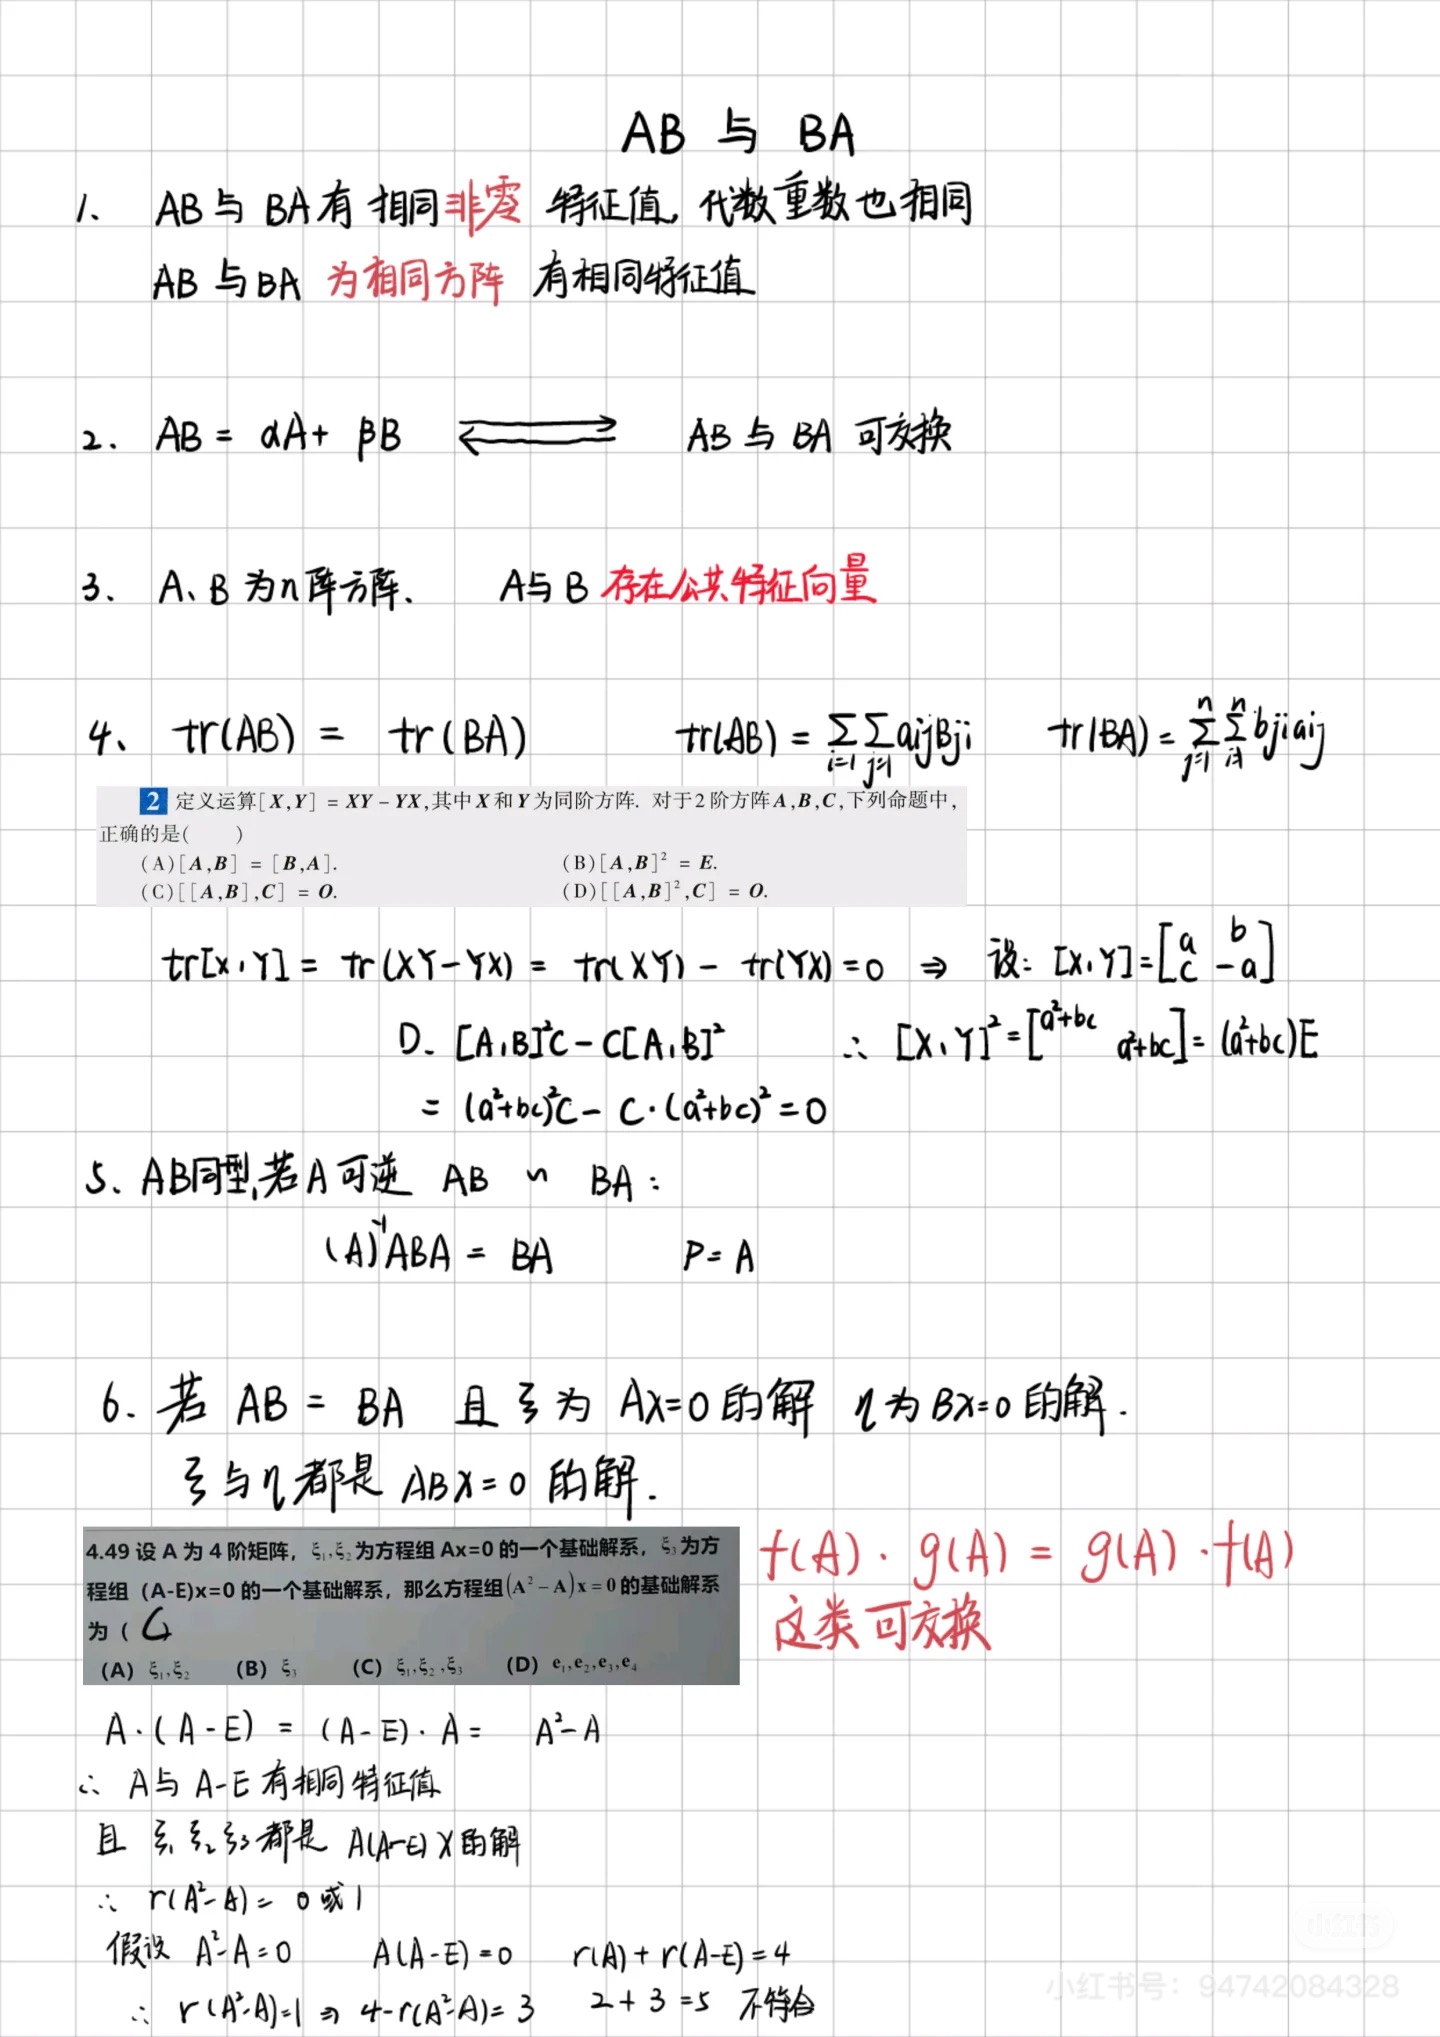 AB 与 BA
1、 AB与BA有相同非零特征值，代数重数也相同
AB与BA 为相同方阵 有相同特征值
2、 AB = αA + βB ⇌ AB与BA 可交换
3、 A、B为n阵方阵. A与B存在公共特征向量
4、 tr(AB) = tr(BA) tr(AB) = ∑i=1∑j=1 aijBji tr(BA) = ∑j=1^n ∑i=1^n bjiaij
2 定义运算[X,Y] = XY − YX,其中X和Y为同阶方阵. 对于2阶方阵A,B,C,下列命题中,
正确的是( )
(A)[A,B] = [B,A]. (B)[A,B]² = E.
(C)[[A,B],C] = O. (D)[[A,B]²,C] = O.
tr[X,Y] = tr(XY−YX) = tr(XY) − tr(YX) = 0 ⇒ 设: [X,Y] = [a b; c −a]
D. [A,B]²C − C[A,B]² ∴ [X,Y]² = [a²+bc a²+bc] = (a²+bc)E
= (a²+bc)²C − C·(a²+bc)² = 0
5、AB同型,若A可逆 AB ∽ BA:
(A)⁻¹ABA = BA P = A
6、若 AB = BA 且 ξ为 Ax=0的解 η为Bx=0的解.
ξ与η都是 ABx=0 的解.
4.49 设 A 为 4 阶矩阵，ξ₁,ξ₂为方程组 Ax=0 的一个基础解系，ξ₃为方
程组（A-E)x=0 的一个基础解系，那么方程组(A²−A)x=0的基础解系
为（ C ）
(A) ξ₁,ξ₂ (B) ξ₃ (C) ξ₁,ξ₂,ξ₃ (D) e₁,e₂,e₃,e₄
f(A)·g(A) = g(A)·f(A)
这类可交换
A·(A−E) = (A−E)·A = A²−A
∴ A与A−E有相同特征值
且 ξ₁ξ₂ξ₃都是 A(A−E)x的解
∴ r(A²−A) = 0或1
假设 A²−A=0 A(A−E)=0 r(A)+r(A−E)=4
∴ r(A²−A)=1 ⇒ 4−r(A²−A)=3 2+3=5 不符合
小红书
小红书号：94742084328